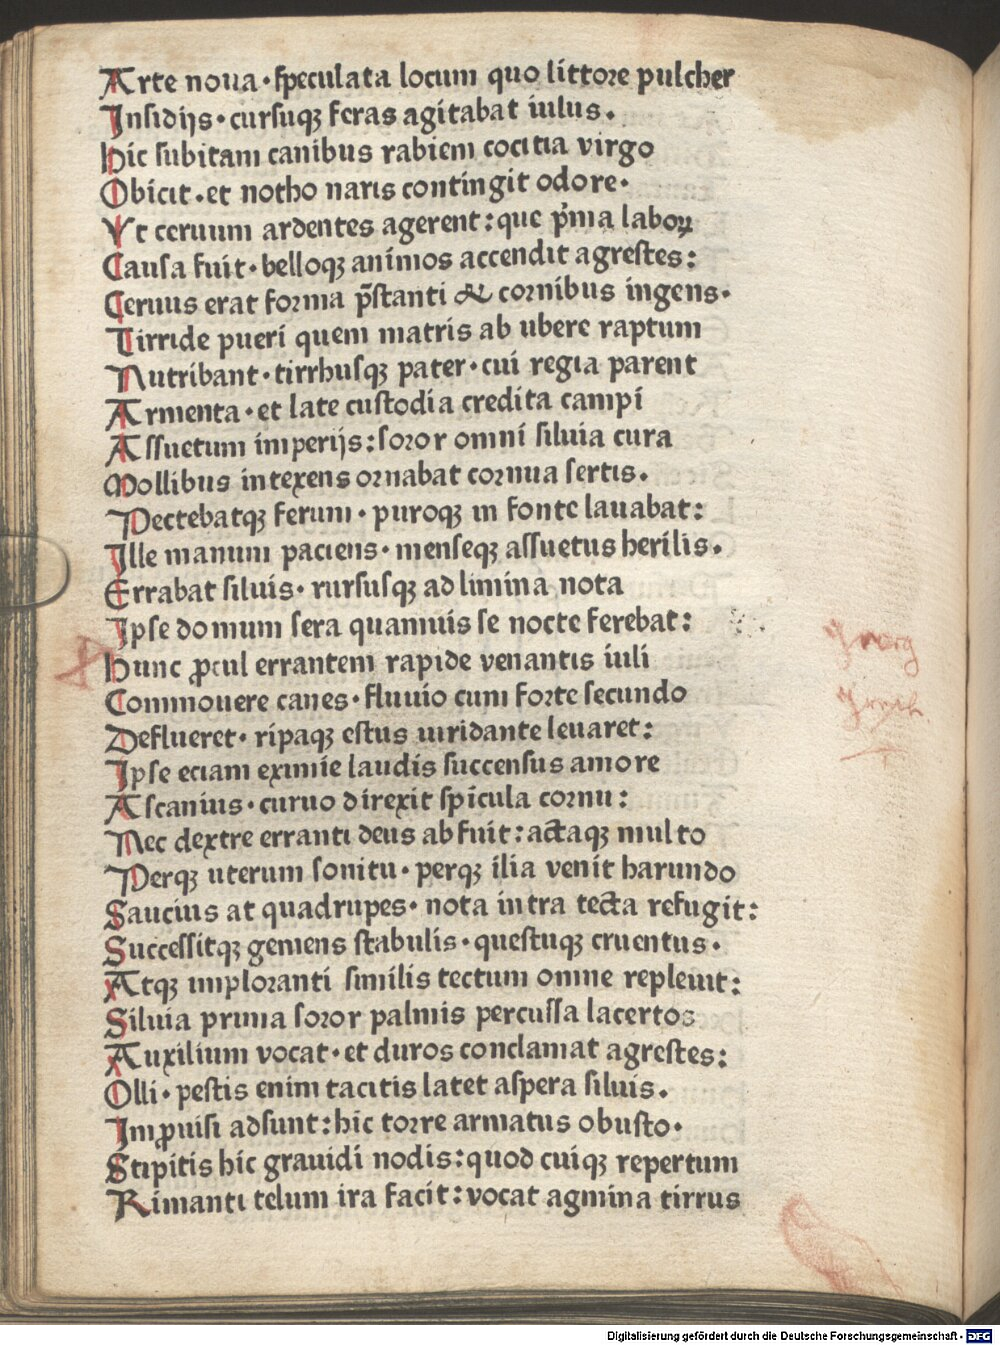 Arte noua · speculata locum quo littore pulcher
Insidijs · cursuqꝫ feras agitabat iulus.
Hic subitam canibus rabiem cocitia virgo
Obicit · et notho naris contingit odore ·
Vt ceruum ardentes agerent : que p̄ma laboꝝ
Causa fuit · belloqꝫ animos accendit agrestes :
Ceruus erat forma p̄stanti & cornibus ingens ·
Tirride pueri quem matris ab ubere raptum
Nutribant · tirrhusqꝫ pater · cui regia parent
Armenta · et late custodia credita campi
Assuetum imperijs : soror omni siluia cura
Mollibus intexens ornabat cornua sertis.
Pectebatqꝫ ferum · puroqꝫ in fonte lauabat :
Ille manum paciens · menseqꝫ assuetus herilis.
Errabat siluis · rursusqꝫ ad limina nota
Ipse domum sera quamuis se nocte ferebat :
Hunc ꝓcul errantem rapide venantis iuli
Commouere canes · fluuio cum forte secundo
Deflueret · ripaqꝫ estus uiridante leuaret :
Ipse eciam eximie laudis succensus amore
Ascanius · curuo direxit spicula cornu :
Nec dextre erranti deus abfuit : actaqꝫ multo
Perqꝫ uterum sonitu · perqꝫ ilia venit harundo
Saucius at quadrupes · nota intra tecta refugit :
Successitqꝫ gemens stabulis · questuqꝫ cruentus ·
Atqꝫ imploranti similis tectum omne repleuit :
Siluia prima soror palmis percussa lacertos
Auxilium vocat · et duros conclamat agrestes :
Olli · pestis enim tacitis latet aspera siluis.
Imꝓuisi adsunt : hic torre armatus obusto ·
Stipitis hic grauidi nodis : quod cuiqꝫ repertum
Rimanti telum ira facit : vocat agmina tirrus
Digitalisierung gefördert durch die Deutsche Forschungsgemeinschaft - DFG